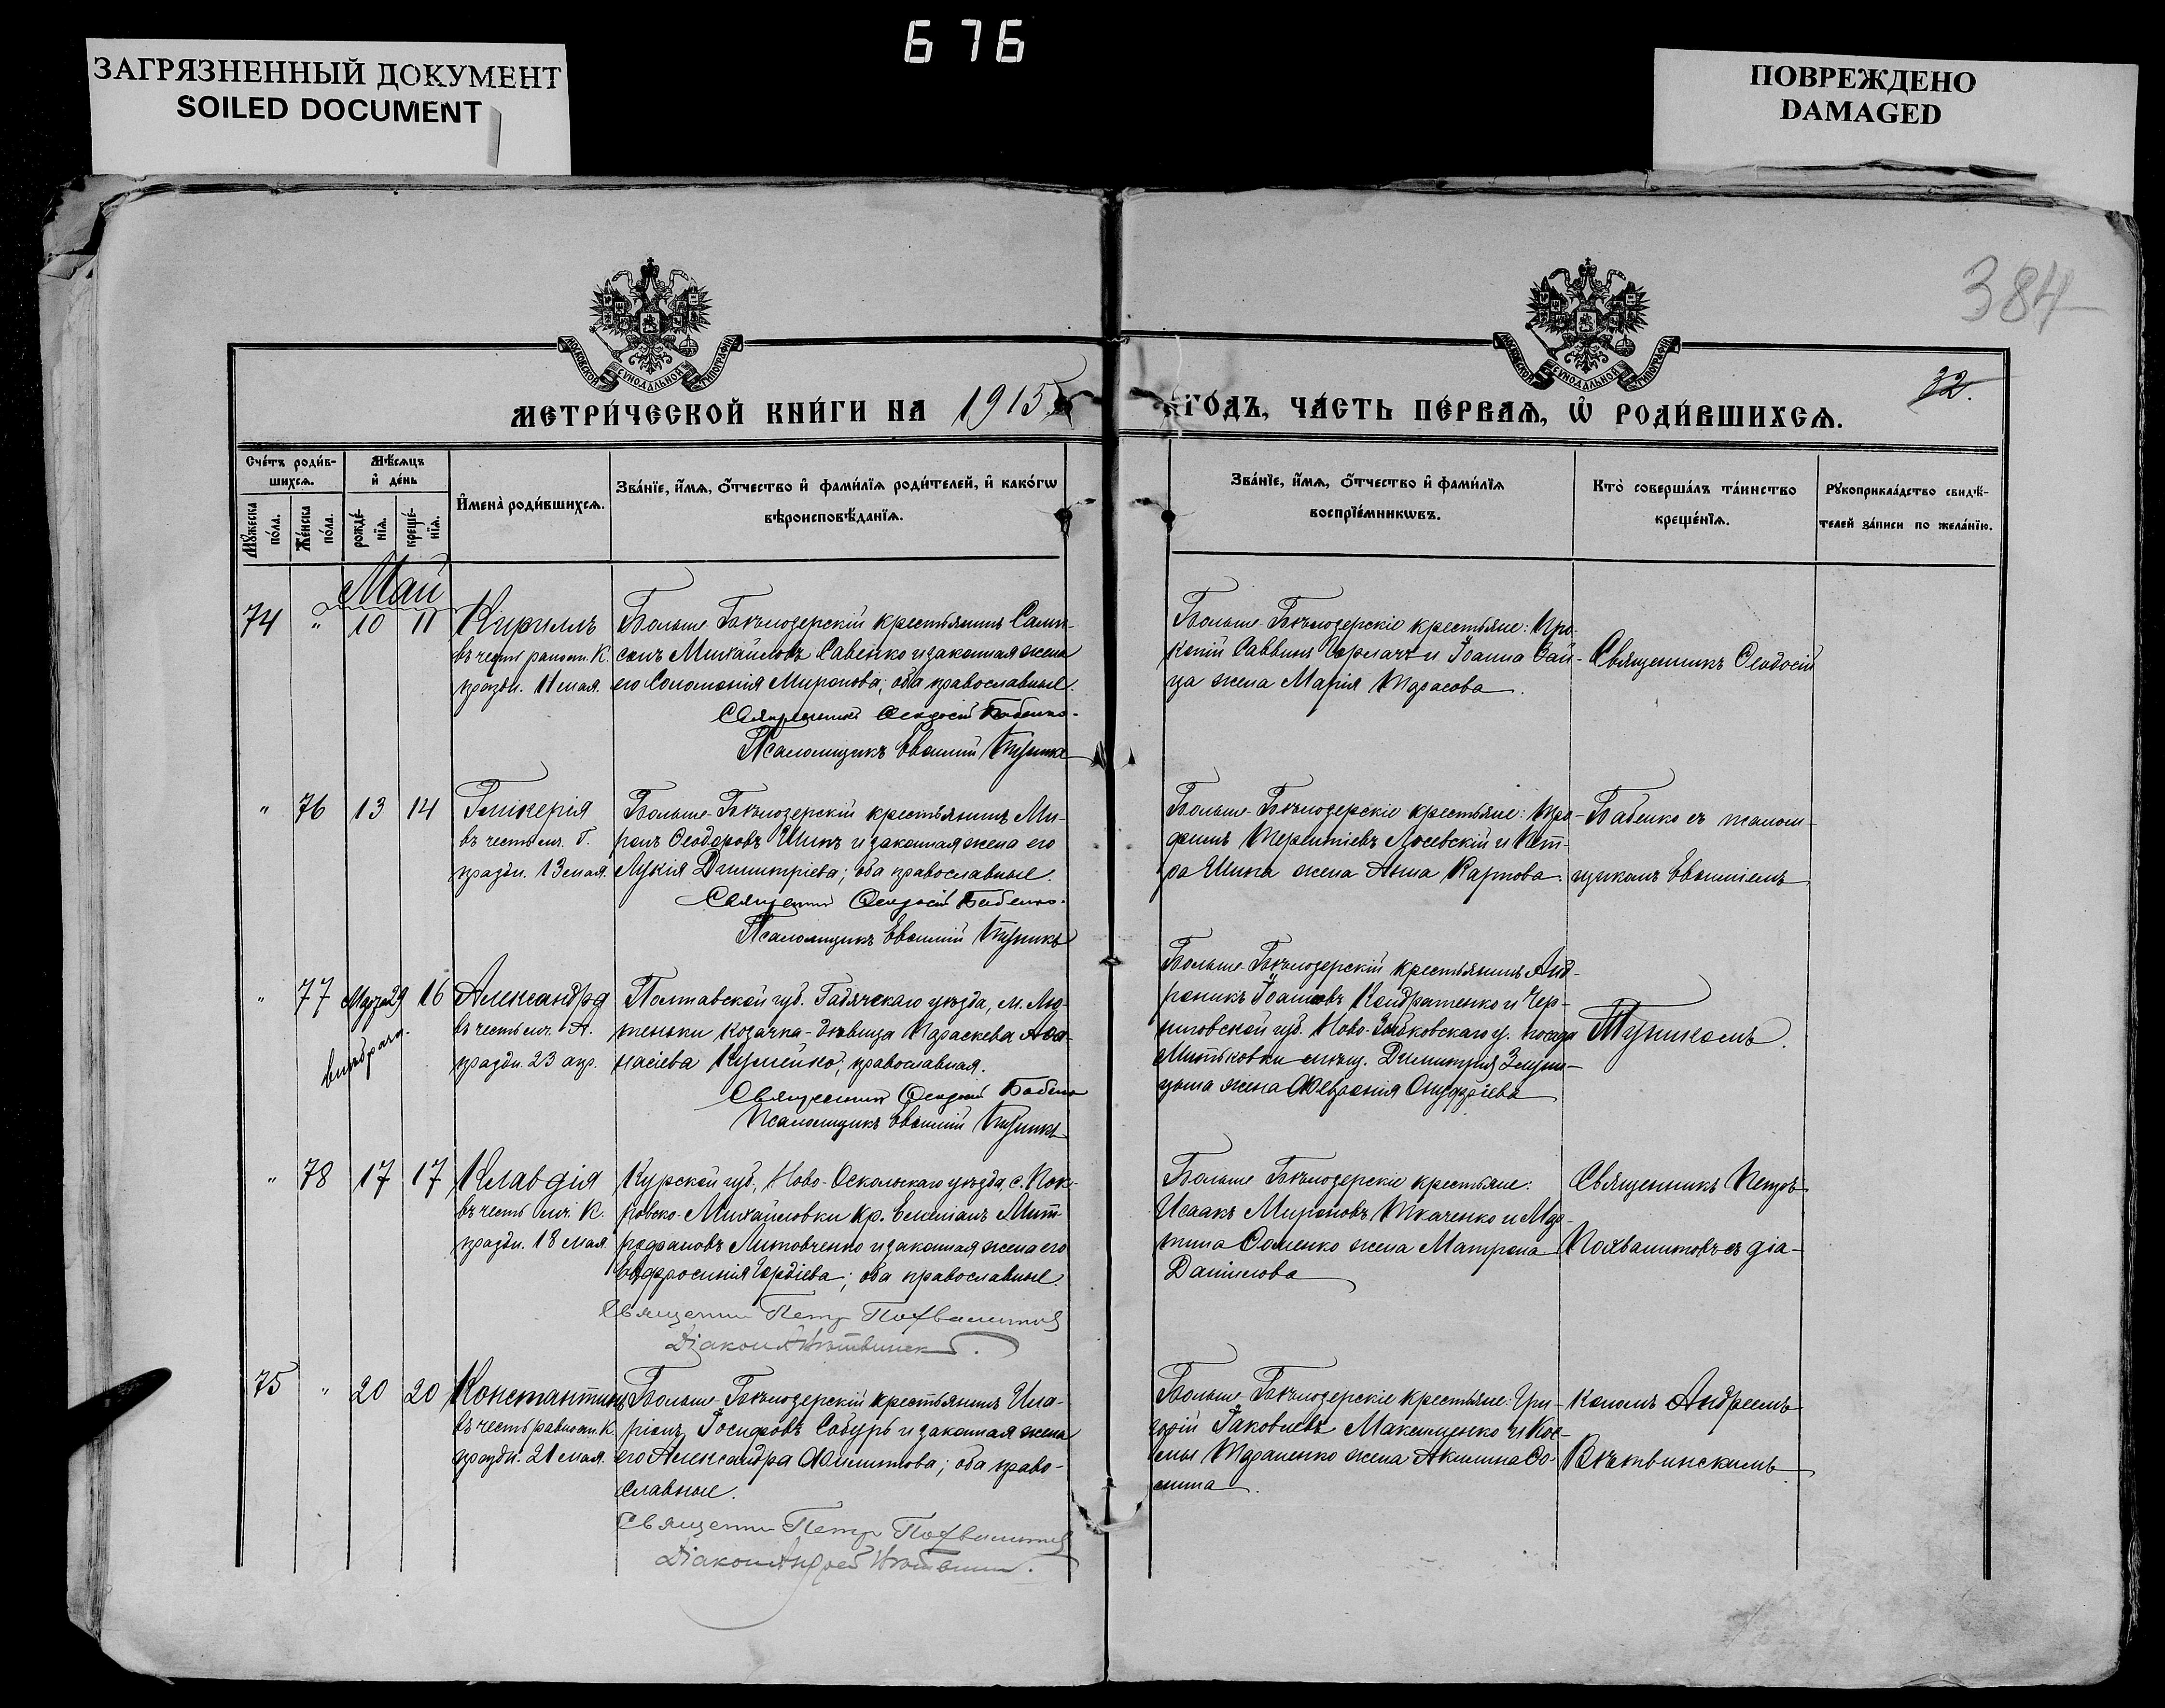 676
ЗАГРЯЗНЕННЫЙ ДОКУМЕНТ
SOILED DOCUMENT
ПОВРЕЖДЕНО
DAMAGED
384
МОСКОВСКОЙ СѴНОДАЛЬНОЙ ТИПОГРАФІИ
МОСКОВСКОЙ СѴНОДАЛЬНОЙ ТИПОГРАФІИ
МЕТРИ́ЧЕСКОЙ КНИ́ГИ НА 1915
ГО́ДЪ, ЧА́СТЬ ПЕ́РВАѦ, Ѽ РОДИ́ВШИХСѦ.
32.
Сче́тъ роди́в-
шихсѧ.
Мѣ́сѧцъ
и҆ де́нь
Мꙋ́жеска
по́ла.
Же́нска
по́ла.
рожде́-
нїѧ.
креще́-
нїѧ.
И҆мена̀ роди́вшихсѧ.
Зва́нїе, и҆́мѧ, ѻ҆́тчество и҆ фами́лїѧ роди́телей, и҆ како́гѡ
вѣроисповѣ́данїѧ.
Зва́нїе, и҆́мѧ, ѻ҆́тчество и҆ фами́лїѧ
воспрїе́мникѡвъ.
Кто̀ соверша́лъ та́инство
креще́нїѧ.
Рꙋкоприкла́дство свидѣ́-
телей за́писи по жела́нїю.
Май
74 " 10 11 Кириллъ
въ честь равноап. К.
праздн. 11 мая.
Больше-Бѣлозерскій крестьянинъ Самп-
сонъ Михайловъ Савенко и законная жена
его Соломонія Миронова; оба православные.
Священникъ Ѳеодосій Бабенко.
Псаломщикъ Евѳимій Тупикъ
Больше-Бѣлозерскіе крестьяне: Про-
копій Саввинъ Горлачъ и Іоанна Зай-
ца жена Марія Тарасова.
Священникъ Ѳеодосій
" 76 13 14 Гликерія
въ честь мч. Г.
праздн. 13 мая.
Больше-Бѣлозерскій крестьянинъ Ми-
ронъ Ѳеодоровъ Шинъ и законная жена его
Лукія Димитріева; оба православные.
Священник Ѳеодосій Бабенко.
Псаломщикъ Евѳимій Тупикъ
Больше-Бѣлозерскіе крестьяне: Тро-
фимъ Терентіевъ Лосевскій и Пет-
ра Шина жена Анна Карпова.
Бабенко съ псалом-
щикомъ Евѳиміемъ
" 77 Марта 29 16 Александра
внѣбрачн.
въ честь мч. А.
праздн. 23 апр.
Полтавской губ. Гадячскаго уѣзда, м. Лю-
теньки козачка-дѣвица Параскева Аѳа-
насіева Кушейко; православная.
Священник Ѳеодосій Бабенко
Псаломщикъ Евѳимій Тупикъ
Больше-Бѣлозерскій крестьянинъ Анд-
роникъ Іоанновъ Кондратенко и Чер-
ниговской губ. Ново-Зыбковскаго у. посада
Митьковки мѣщ. Димитрія
жена Ѳеврония Онуфріева
Тупикомъ.
" 78 17 17 Клавдія
въ честь мч. К.
праздн. 18 мая
Курской губ., Ново-Оскольскаго уѣзда, с. Пок-
ровско-Михайловки кр. Емиліанъ Мит-
рофановъ Литовченко и законная жена его
Евфросинія Гордіева; оба православные.
Священник Петр Похвалитов
Діакон А Вѣтвинск.
Больше-Бѣлозерскіе крестьяне:
Исаакъ Мироновъ Ткаченко и Мар-
тина Сотенко жена Матрона
Даніилова
Священникъ Петръ
Похвалитовъ съ діа-
75 " 20 20 Константинъ
въ честь равноап. К.
праздн. 21 мая.
Больше-Бѣлозерскій крестьянинъ Ила-
ріонъ Іосифовъ Сабуръ и законная жена
его Александра Филиппова; оба право-
славные.
Священник Петр Похвалитов
Діакон Андрей Вѣтвинск.
Больше-Бѣлозерскіе крестьяне: Гри-
горій Іаковлевъ Максименко и Кос-
мы Тараненко жена Акилина Ѳо-
мина.
кономъ Андреемъ
Вѣтвинскимъ